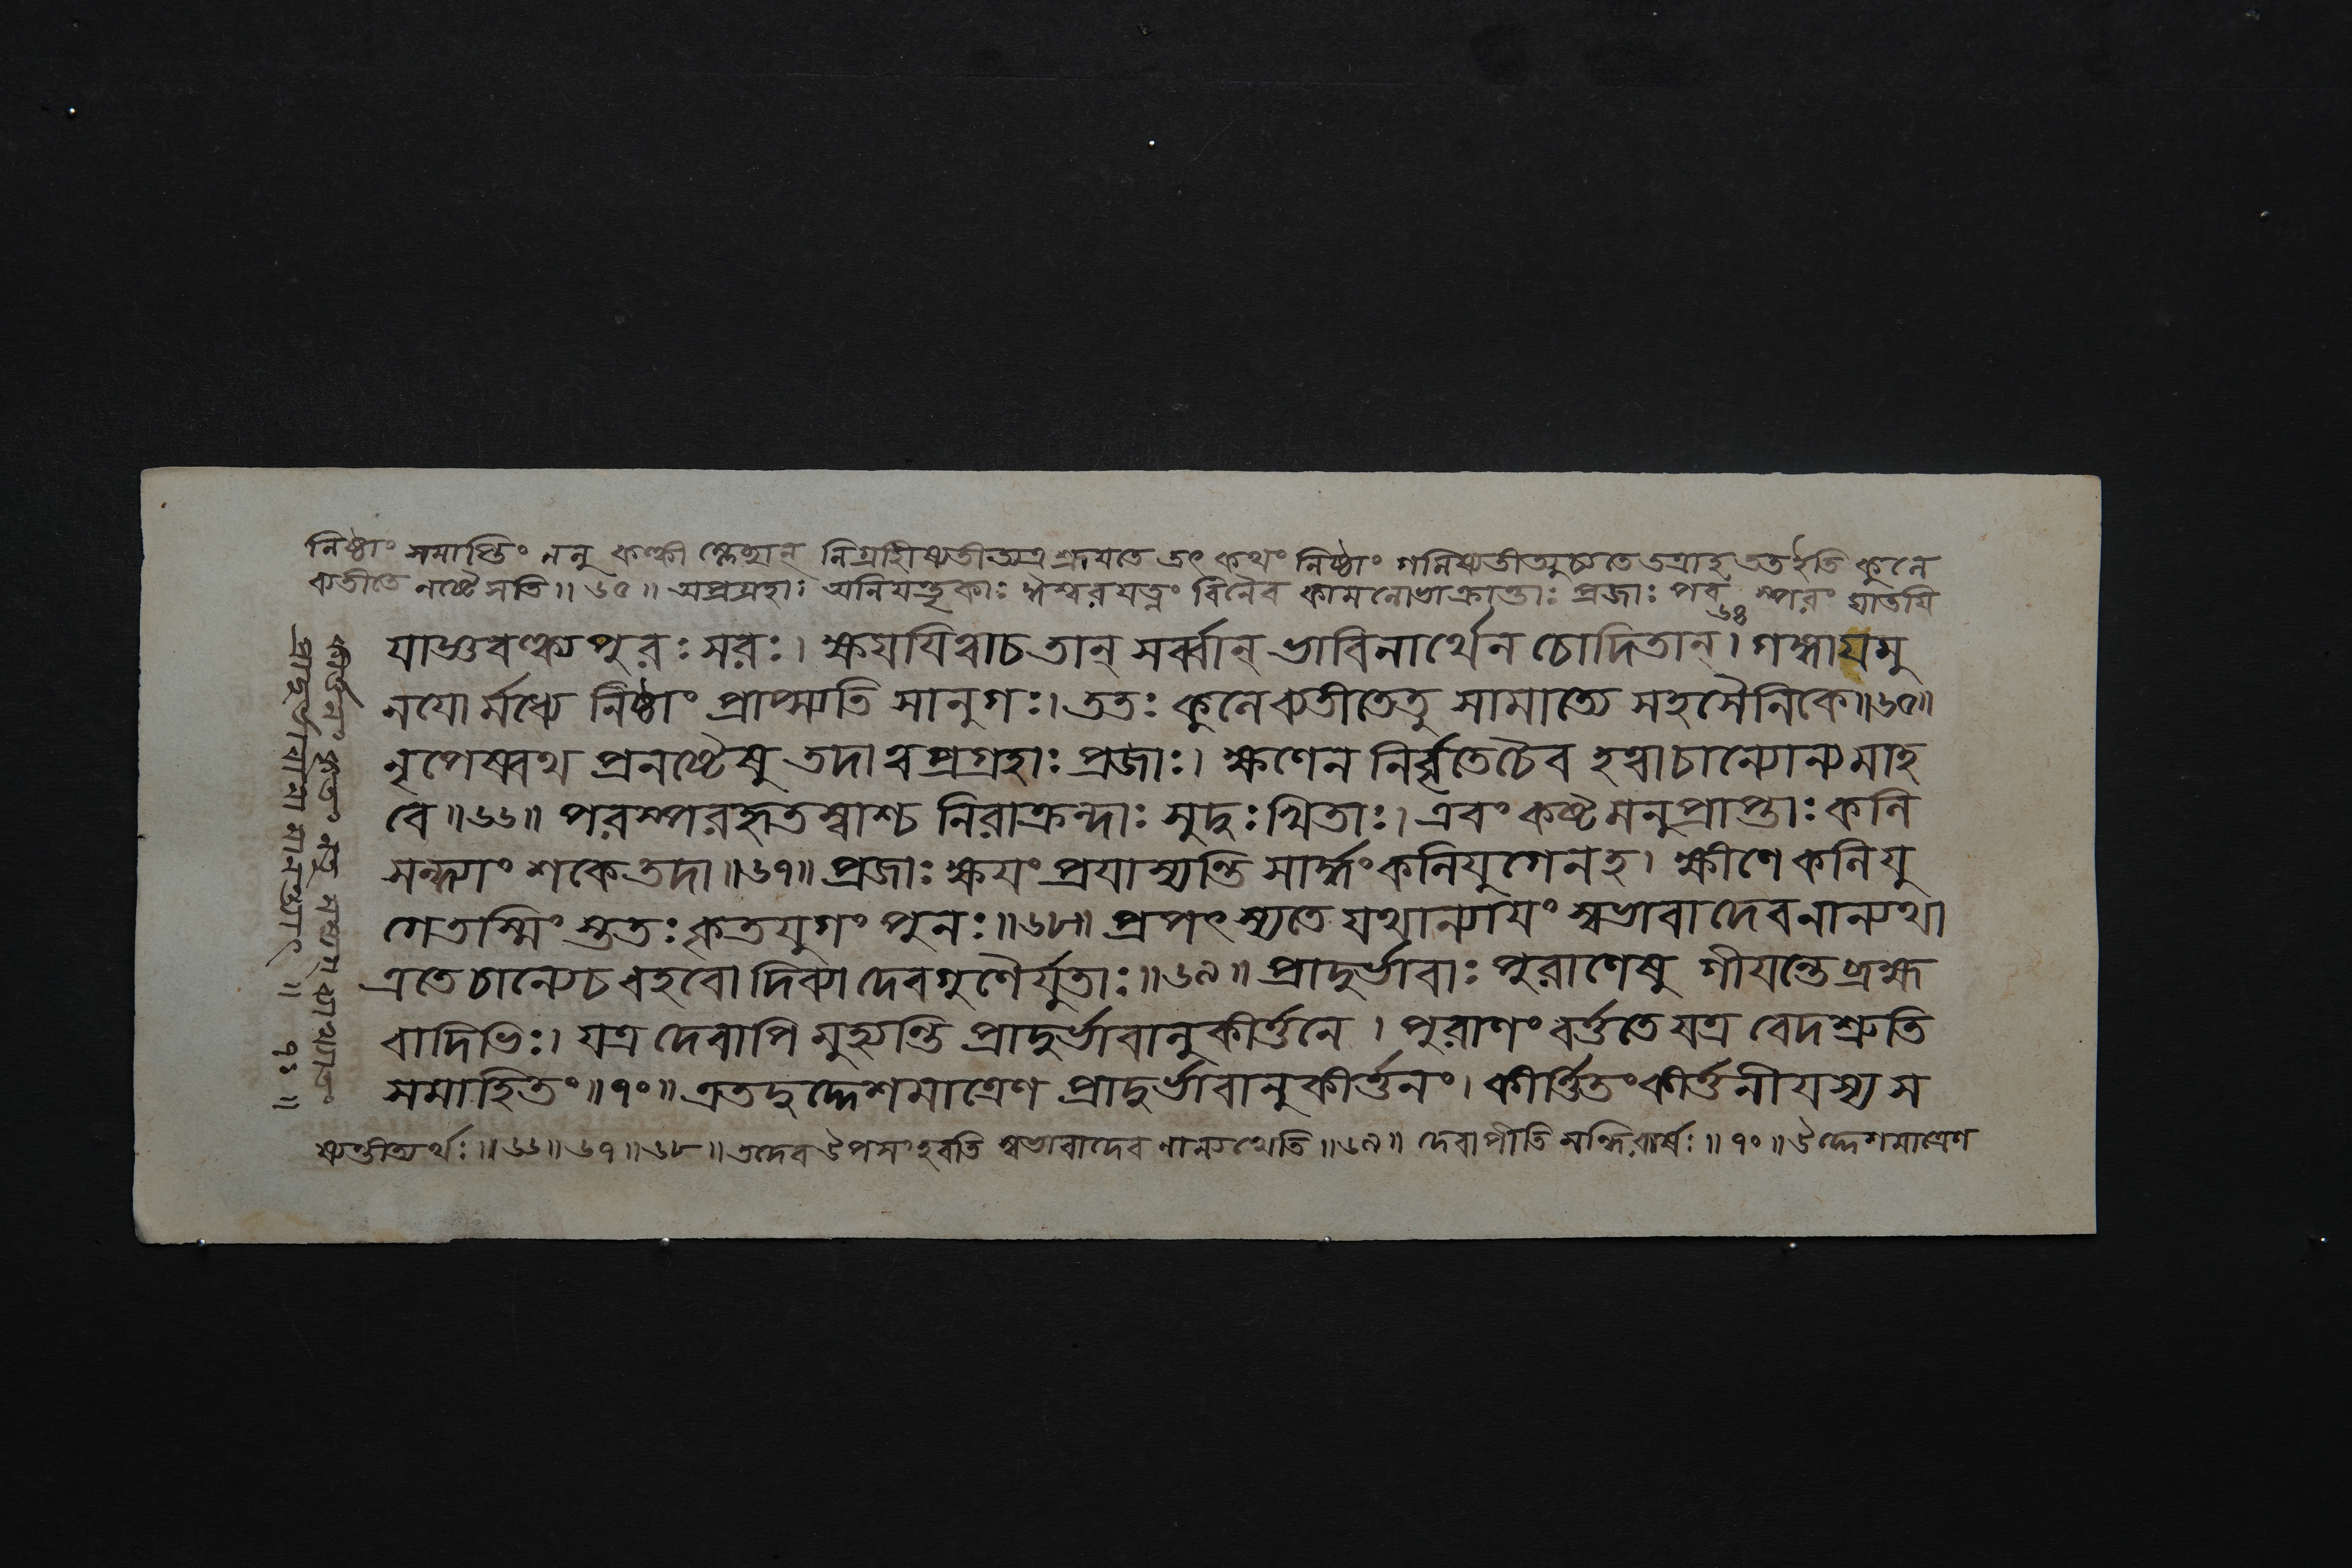 নিষ্ঠাং সমাপ্তিং ননু কল্কী ম্লেছান্ নিগ্রহীষ্যতীত্যত্র শ্রূযতে তৎ কথং নিষ্ঠাং গমিষ্যতীত্যুচ্যতে তত্রাহ ততইতি কুলে
ব্যতীতে নষ্টে সতি॥ ৬৫॥ অপ্রগ্রহাঃ অনিযন্তৃকাঃ ঐশ্বরযত্নং বিনৈব কামলোভাক্রান্তাঃ প্রজাঃ পরস্পরং ঘাতযি
যাজ্ঞবল্ক্য পুরঃসরঃ। ক্ষযযিৱাচ তান্ সর্ব্বান্ ভাবিনার্থেন চোদিতান্। ৬৪ গঙ্গাযমু
নযোর্মধ্যে নিষ্ঠাং প্রাপ্স্যতি সানুগঃ। ততঃ কুলে ব্যতীতেতু সামাত্যে সহসৈনিকে॥৬৫॥
নৃপেষ্বথ প্রনষ্টেষু তদাৱপ্রগ্রহাঃ প্রজাঃ। ক্ষণেন নির্বৃতেচৈব হৱাচান্যোন্যমাহ
বে॥৬৬॥ পরস্পরহৃতস্বাশ্চ নিরাক্রন্দাঃ সুদুঃখিতাঃ। এবং কষ্টমনুপ্রাপ্তাঃ কলি
সন্ধ্যাং শকে তদা॥৬৭॥ প্রজাঃ ক্ষযং প্রযাস্যন্তি সার্দ্ধং কলিযুগেনহ। ক্ষীণে কলিযু
গে তস্মিং স্ততঃ কৃতযুগং পুনঃ॥৬৮॥ প্রপৎস্যতে যথান্যাযং স্বভাবাদেবনান্যথা
এতে চান্যেচ বহবো দিব্যা দেবগুণৈর্যুতাঃ॥৬৯॥ প্রাদুর্ভাবাঃ পুরাণেষু গীযন্তে ব্রহ্ম
বাদিভিঃ। যত্র দেবাপি মুহ্যন্তি প্রাদুর্ভাবানুকীর্ত্তনে। পুরাণং বর্ত্ততে যত্র বেদশ্রুতি
সমাহিতং॥৭০॥ এতদুদ্দেশমাত্রেণ প্রাদুর্ভাবানুকীর্ত্তনং। কীর্ত্তিতং কীর্ত্তনীযস্য স
ষ্যন্তীত্যর্থঃ॥৬৬॥৬৭॥৬৮॥ তদেব উপসংহরতি স্বভাবাদেব নান্যথেতি॥৬৯॥ দেবাপীতি সন্ধিরার্ষঃ॥৭০॥ উদ্দেশমাত্রেণ
কীর্ত্তনং কৃতং
প্রাদুর্ভাবানা॥ ৭১॥